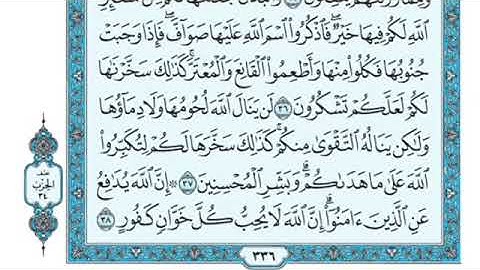 وَمِمَّا رَزَقْنَٰهُمْ
ٱللَّهِ لَكُمْ فِيهَا خَيْرٌ ۖ فَٱذْكُرُوا۟ ٱسْمَ ٱللَّهِ عَلَيْهَا صَوَآفَّ ۖ فَإِذَا وَجَبَتْ
جُنُوبُهَا فَكُلُوا۟ مِنْهَا وَأَطْعِمُوا۟ ٱلْقَانِعَ وَٱلْمُعْتَرَّ ۚ كَذَٰلِكَ سَخَّرْنَٰهَا
لَكُمْ لَعَلَّكُمْ تَشْكُرُونَ ٣٦ لَن يَنَالَ ٱللَّهَ لُحُومُهَا وَلَا دِمَآؤُهَا
وَلَٰكِن يَنَالُهُ ٱلتَّقْوَىٰ مِنكُمْ ۚ كَذَٰلِكَ سَخَّرَهَا لَكُمْ لِتُكَبِّرُوا۟
ٱللَّهَ عَلَىٰ مَا هَدَىٰكُمْ ۗ وَبَشِّرِ ٱلْمُحْسِنِينَ ٣٧ ۞ إِنَّ ٱللَّهَ يُدَٰفِعُ
عَنِ ٱلَّذِينَ ءَامَنُوٓا۟ ۗ إِنَّ ٱللَّهَ لَا يُحِبُّ كُلَّ خَوَّانٍ كَفُورٍ ٣٨
٣٣٦
الحزب
٣٤